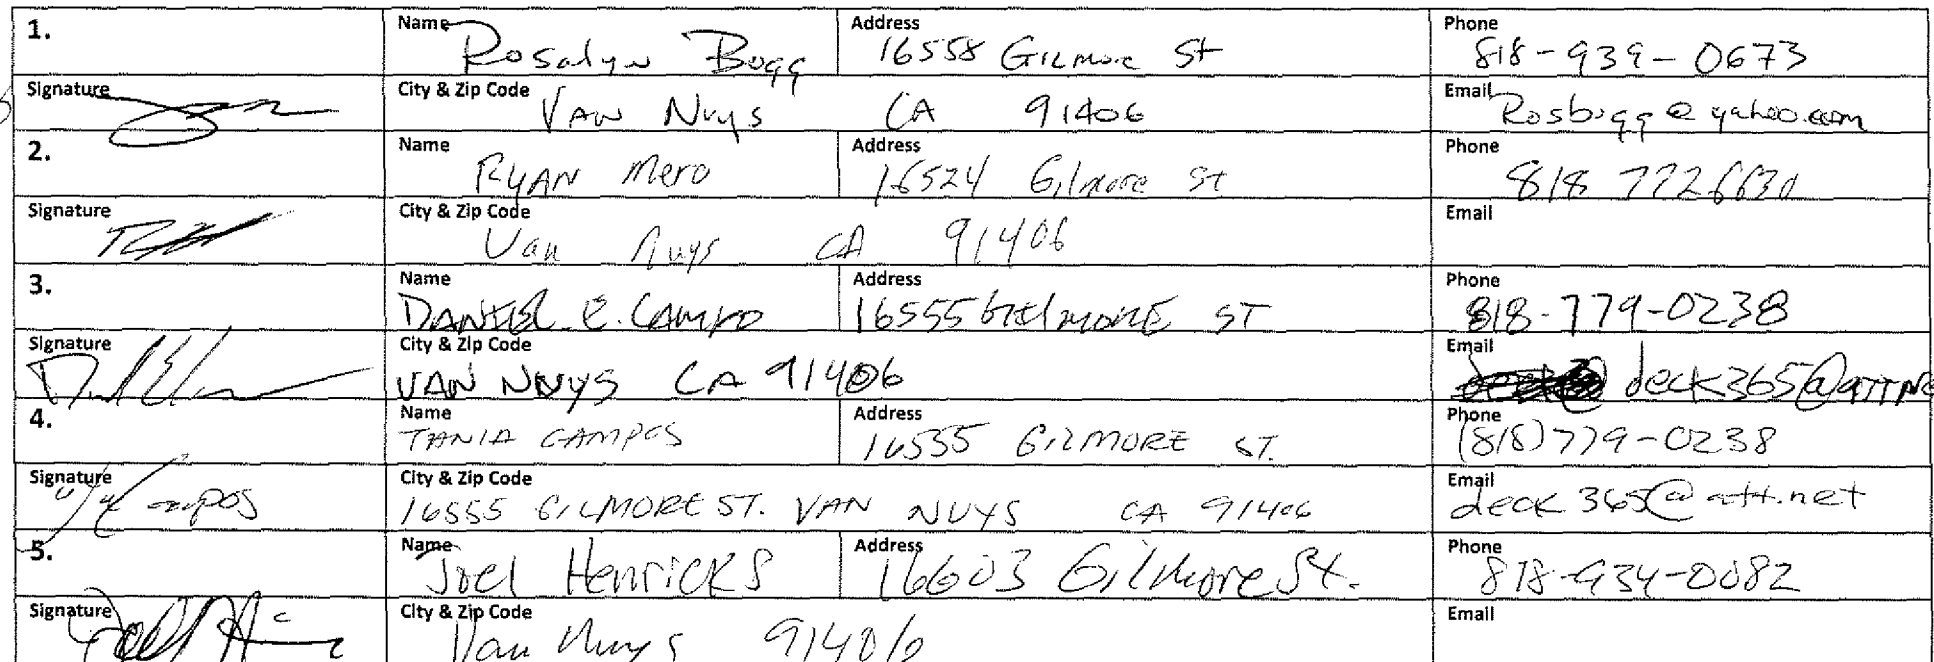 1. Name Rosalyn Bugg Address 16558 Gilmore St Phone 818-939-0673
Signature City & Zip Code Van Nuys CA 91406 Email Rosbugg@yahoo.com
2. Name Ryan Mero Address 16524 Gilmore St Phone 818 7726630
Signature City & Zip Code Van Nuys CA 91406 Email
3. Name DANIEL E. CAMPO Address 16555 GILMORE ST Phone 818-779-0238
Signature City & Zip Code VAN NUYS CA 91406 Email deck365@att.ne
4. Name TANIA CAMPOS Address 16555 GILMORE ST. Phone (818)779-0238
Signature City & Zip Code 16555 GILMORE ST. VAN NUYS CA 91406 Email deck365@att.net
5. Name Joel Henricks Address 16603 Gilmore St. Phone 818-934-0082
Signature City & Zip Code Van Nuys 91406 Email